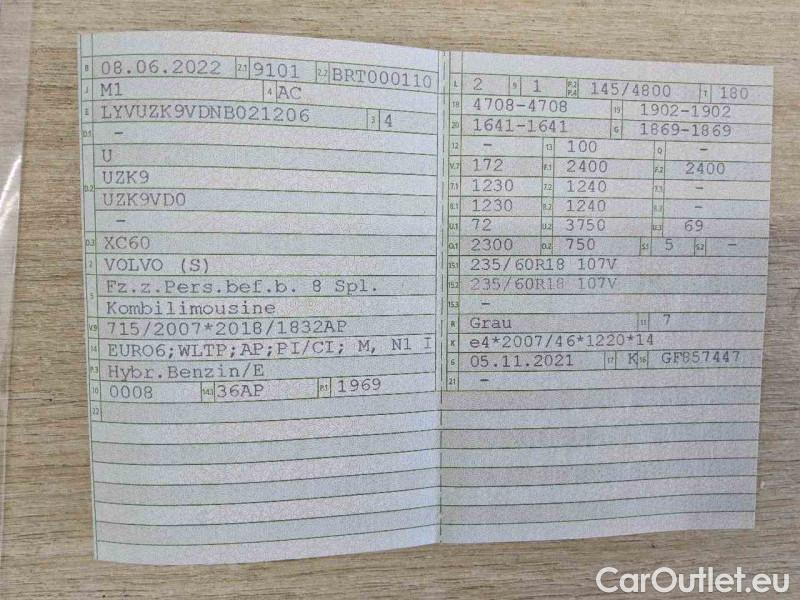 B 08.06.2022 2.1 9101 2.2 BRT000110
J M1 4 AC
E LYVUZK9VDNB021206 3 4
D.1 -
D.2 U
UZK9
UZK9VD0
-
D.3 XC60
2 VOLVO (S)
5 Fz.z.Pers.bef.b. 8 Spl.
Kombilimousine
V.9 715/2007*2018/1832AP
14 EURO6;WLTP;AP;PI/CI; M, N1 I
P.3 Hybr.Benzin/E
10 0008 14.1 36AP P.1 1969
22
L 2 9 1 P.2 P.4 145/4800 T 180
18 4708-4708 19 1902-1902
20 1641-1641 G 1869-1869
12 - 13 100 Q -
V.7 172 F.1 2400 F.2 2400
7.1 1230 7.2 1240 7.3 -
8.1 1230 8.2 1240 8.3 -
U.1 72 U.2 3750 U.3 69
O.1 2300 O.2 750 S.1 5 S.2 -
15.1 235/60R18 107V
15.2 235/60R18 107V
15.3 -
R Grau 11 7
K e4*2007/46*1220*14
6 05.11.2021 17 K 16 GF857447
21 -
CarOutlet.eu